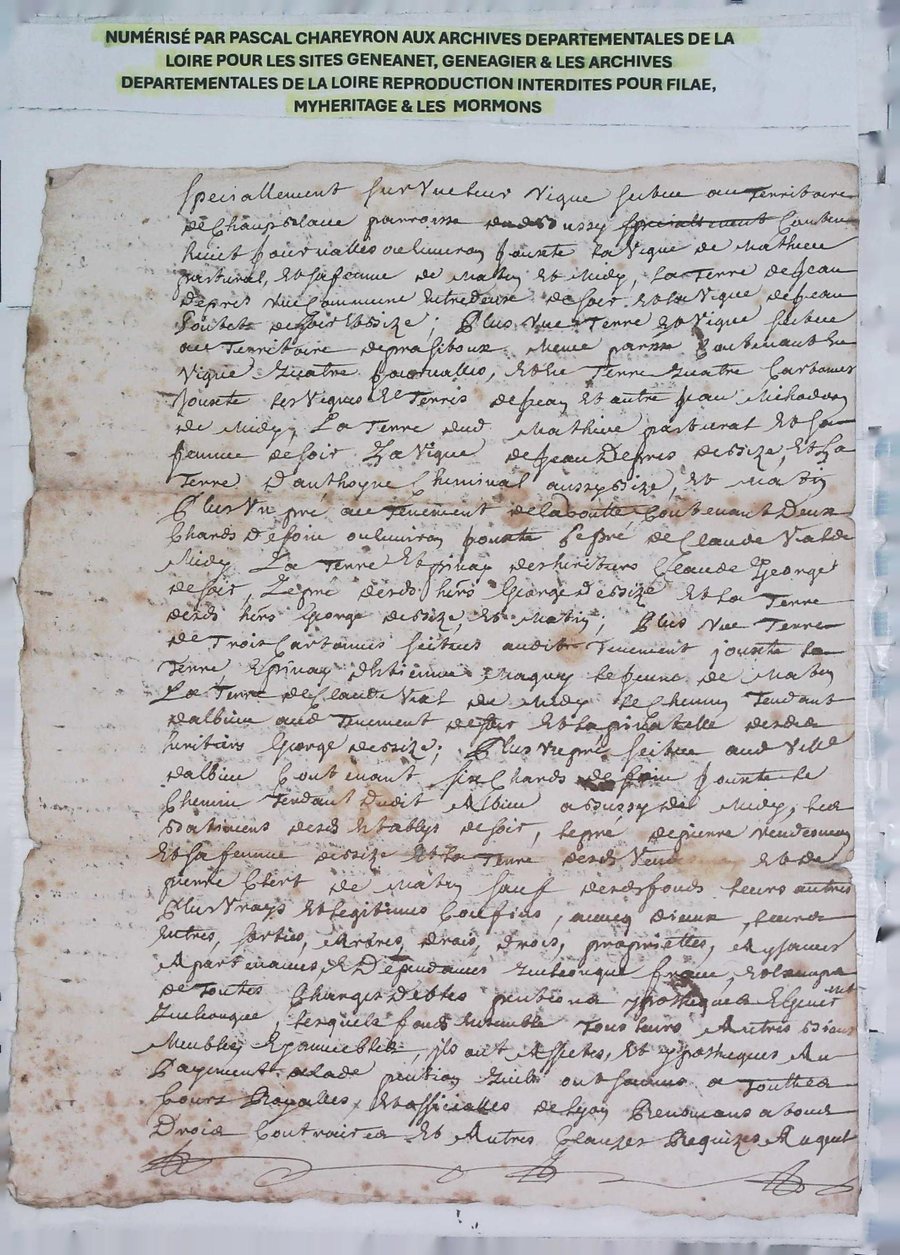 NUMÉRISÉ PAR PASCAL CHAREYRON AUX ARCHIVES DEPARTEMENTALES DE LA
LOIRE POUR LES SITES GENEANET, GENEAGIER & LES ARCHIVES
DEPARTEMENTALES DE LA LOIRE REPRODUCTION INTERDITES POUR FILAE,
MYHERITAGE & LES MORMONS
speciallement sur une leur vigne scitue au Territoire
de parroisse dud Bussy speciallement
huict journallees ou environ jouxte la vigne de Mathieu
pastural, et sa femme de matin et midy, la Terre de Jean
Depris une commune entredeux de soir et la vigne de Jean
de soir et bize; Plus une Terre et vigne scitue
au Territoire de mesme parsse contenant en
vigne quatre journalles, et en Terre quatre cartonnes
jouxte les vignes et Terres de Jean et autre Jean
de midy, La Terre dud Mathieu pasturat et sa
femme de soir La vigne de Jean Depris de bize, et La
Terre d'anthoyne Cheminal aussy bize, et matin
Plus un pré au Tenement de la goutte, contenant deux
chards de foin ou environ jouxte le pré de Claude Vial de
midy La Terre et des heritiers Claude George
de soir, Le pré desds hers George de bize et La Terre
desds hers George de bize, et matin; Plus une Terre
de Trois cartonnes scitues audit Tenement jouxte la
Terre d'Estienne Maguy le jeune de matin
La Terre de Claude Vial de midy le chemin Tendant
d'albieu aud Tenement de soir et la desds
heritiers George de bize; Plus un pré scitue aud Ville
d'albieu contenant six chards de foin jouxte le
chemin Tendant dudit Albieu a Bussy de midy, les
batiments desds establys de soir, le pré de pierre
et sa femme de bize et La Terre desds et de
pierre de matin sauf desds fonds leurs autres
Plus vrays et legitimes confins, avecq iceux leurs
entres, sorties, arbres, drois, proprietes, aysances
apartenances et Dependances quelconque franc, et
de Toutes charges debtes pentions ypotheques Et
quelconque, lesquels fonds ensemble Tous leurs autres biens
Meubles et immeubles, ils ont affectes, et ypotheques au
payement de lad pention quils ont soumis a Touttes
Cours Royalles et officialles de Lyon Renoncans a tous
Droits contraires et Autres clauses Requizes